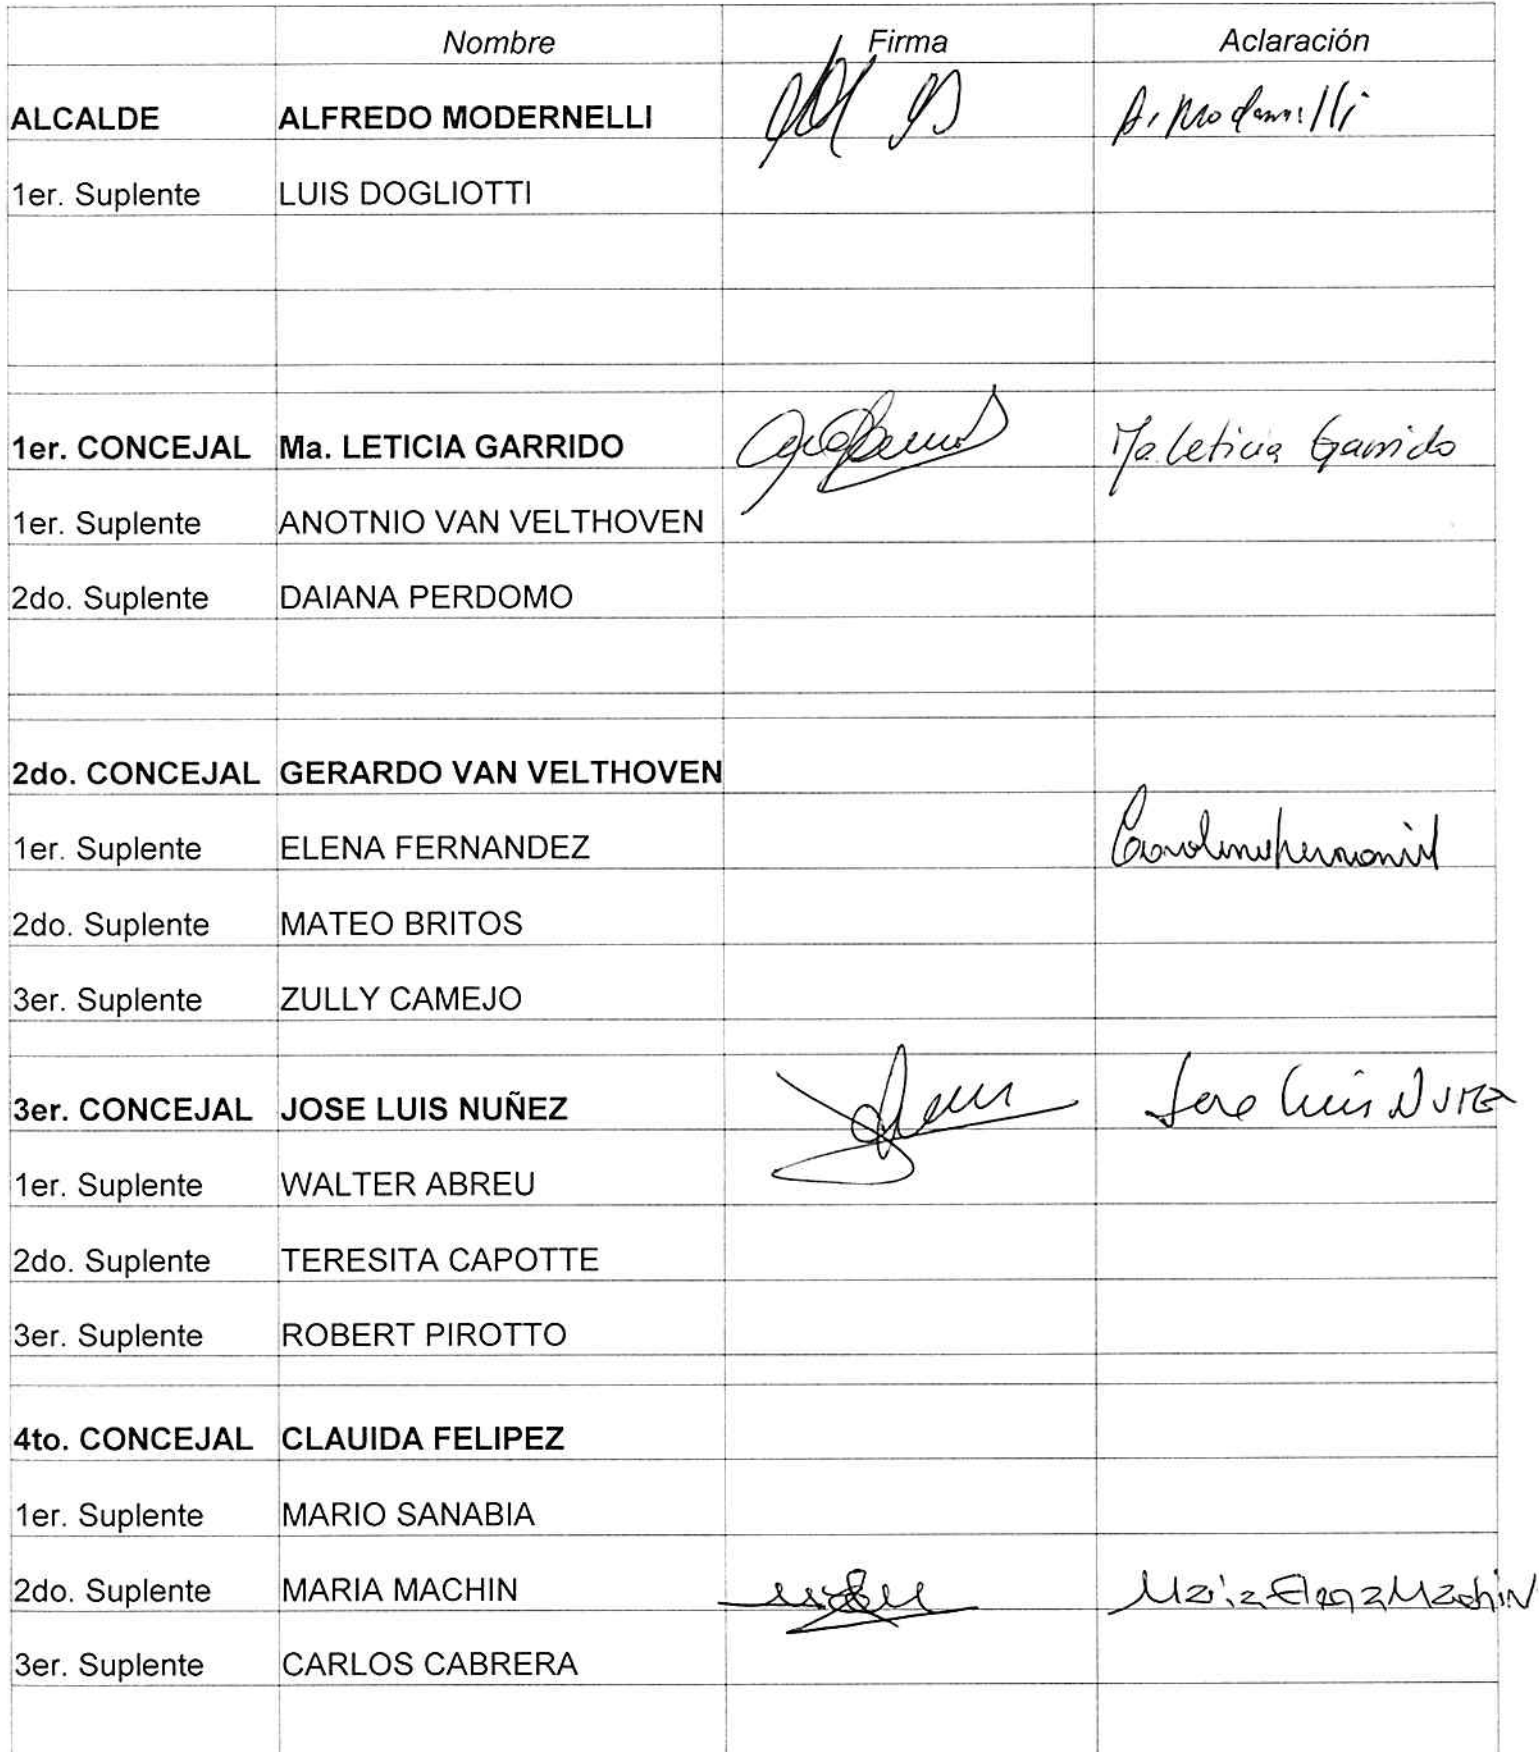 Nombre Firma Aclaración
ALCALDE ALFREDO MODERNELLI A. Modernelli
1er. Suplente LUIS DOGLIOTTI
1er. CONCEJAL Ma. LETICIA GARRIDO Ma. Leticia Garrido
1er. Suplente ANOTNIO VAN VELTHOVEN
2do. Suplente DAIANA PERDOMO
2do. CONCEJAL GERARDO VAN VELTHOVEN
1er. Suplente ELENA FERNANDEZ
2do. Suplente MATEO BRITOS
3er. Suplente ZULLY CAMEJO
3er. CONCEJAL JOSE LUIS NUÑEZ Jose Luis
1er. Suplente WALTER ABREU
2do. Suplente TERESITA CAPOTTE
3er. Suplente ROBERT PIROTTO
4to. CONCEJAL CLAUIDA FELIPEZ
1er. Suplente MARIO SANABIA
2do. Suplente MARIA MACHIN Maria Elena Machin
3er. Suplente CARLOS CABRERA